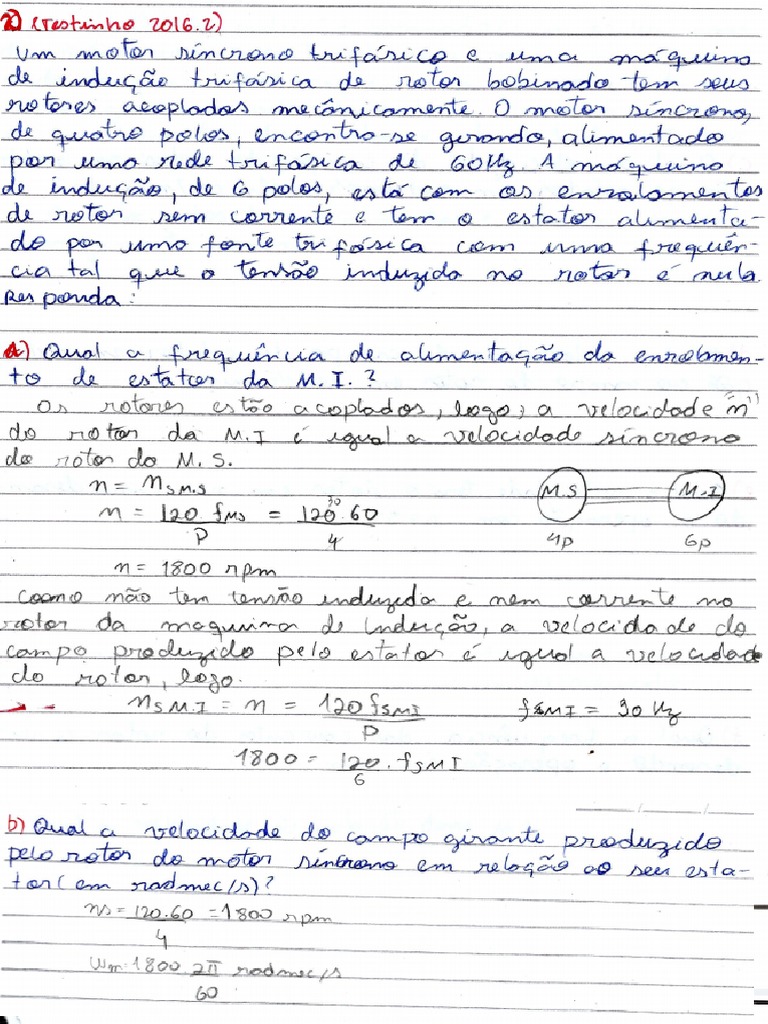 2) (Testinho 2016.2)
Um motor síncrono trifásico e uma máquina
de indução trifásica de rotor bobinado tem seus
rotores acoplados mecânicamente. O motor síncrono,
de quatro polos, encontra-se girando, alimentado
por uma rede trifásica de 60Hz. A máquina
de indução, de 6 polos, está com os enrolamentos
de rotor sem corrente e tem o estator alimenta-
do por uma fonte trifásica com uma frequên-
cia tal que a tensão induzida no rotor é nula
Responda:
a) Qual a frequência de alimentação do enrolamen-
to de estator da M.I.?
Os rotores estão acoplados, logo, a velocidade "n"
do rotor da M.I é igual a velocidade síncrona
do rotor do M.S.
n = nsM.S
n = 120 fMS / P = 120.60 / 4
30
n = 1800 rpm
M.S M.I
4p 6p
Como não tem tensão induzida e nem corrente no
rotor da maquina de indução, a velocidade do
campo produzido pelo estator é igual a velocidade
do rotor, logo.
nsM.I = n = 120 fsMI / P fsMI = 90 Hz
1800 = 120 . fsMI / 6
b) Qual a velocidade do campo girante produzido
pelo rotor do motor síncrono em relação ao seu esta-
tor (em radmec/s)?
ns = 120.60 / 4 = 1800 rpm
Wm = 1800 2π / 60 radmec/s